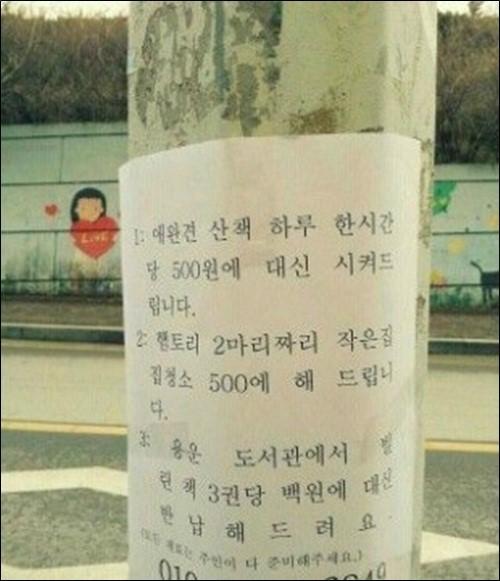 LOVE
1: 애완견 산책 하루 한시간
당 500원에 대신 시켜드
립니다.
2: 햄토리 2마리짜리 작은집
집청소 500에 해 드립니
다.
3: 용운 도서관에서 빌
린 책 3권당 백원에 대신
반납해드려요.
(모든 재료는 주인이 다 준비해주세요.)
010